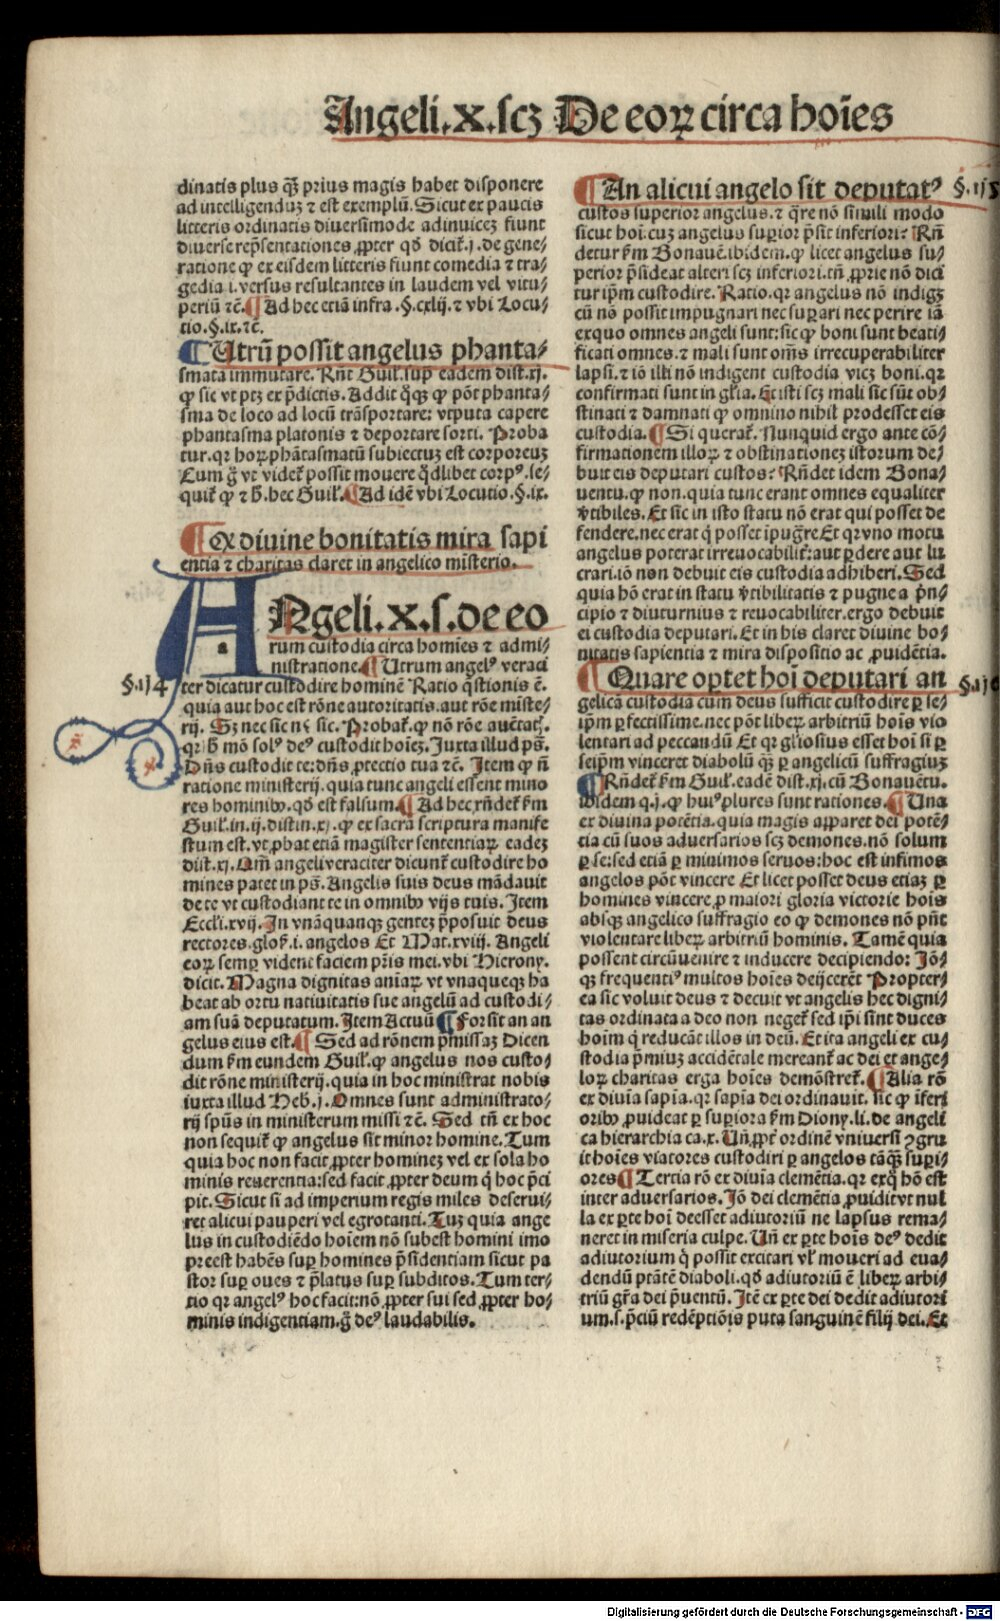 Angeli.x.scz De eoꝝ circa hoīes
dinatis plus qȝ prius magis habet disponere
ad intelligenduȝ ⁊ est exemplū. Sicut ex paucis
litteris ordinatis diuersimode adinuiceȝ fiunt
diuerse rep̄sentationes ꝓpter qđ dicit̄.j.de gene/
ratione ꝙ ex eisdem litteris fiunt comedia ⁊ tra/
gedia i.versus resultantes in laudem vel vitu/
periū ⁊c̄. ¶ Ad hec etiā infra.§.cxlij.⁊ vbi Locu/
tio.§.ix.⁊c̄.
¶ Utrū possit angelus phanta/
smata immutare. Rn̄t Guil̄.sup̄ eadem dist.xj.
ꝙ sic vt ptȝ ex p̄dictis. Addit qȝꝙ ꝙ pōt phanta/
sma de loco ad locū trāsportare: vtputa capere
phantasma platonis ⁊ deportare sorti. Proba
tur.qꝛ hoꝝ phātasmatū subiectuȝ est corporeuȝ
Cum g̊ vt videt̄ possit mouere qđlibet corpꝰ.se/
quit̄ ꝙ ⁊ h̄.hec Guil̄. ¶ Ad idē vbi Locutio.§.ix.
¶ Ex diuine bonitatis mira sapi
entia ⁊ charitas claret in angelico misterio.
ANgeli.x.s.de eo
rum custodia circa homīes ⁊ admi/
nistratione. ¶ Utrum angelꝰ veraci
§.114 ter dicatur custodire hominē Ratio q̄stionis ē.
quia aut hoc est rōne autoritatis.aut rōe miste/
rij. Sȝ nec sic nᵉ sic. Probat̄.ꝙ nō rōe auc̄tatꝭ.
qꝛ h̄ mō solꝰ deꝰ custodit hoīeȝ. Juxta illud ps̄.
Dn̄s custodit te: dn̄s ꝓtectio tua ⁊c̄. Item ꝙ n̄
ratione ministerij. quia tunc angeli essent mino
res hominibꝰ. qđ est falsum. ¶ Ad hec rn̄det̄ s̄m
Guil̄.in.ij.distin.xj.ꝙ ex sacra scriptura manife
stum est.vt ꝓbat etiā magister sententiaꝝ eadeȝ
dist.xj. Om̄ angeli veraciter dicunt̄ custodire ho
mines patet in ps̄. Angelis suis deus mādauit
de te vt custodiant te in omnibꝰ vijs tuis. Item
Eccl̄i.xvij. In vnāquanqȝ genteȝ p̄posuit deus
rectores.glos̄.i.angelos Et Mat.xviij. Angeli
eoꝝ semꝑ vident faciem pr̄is mei.vbi Hierony.
dicit. Magna dignitas aniaꝝ vt vnaqueqȝ ha
beat ab ortu natiuitatis sue angelū ad custodi/
am suā deputatum. Item Actuū ¶ Forsit an an
gelus eius est. ¶ Sed ad rōnem p̄missaȝ Dicen
dum s̄m eundem Guil̄.ꝙ angelus nos custo/
dit rōne ministerij.quia in hoc ministrat nobis
iuxta illud Heb̄.j. Omnes sunt administrato/
rij spūs in ministerum missi ⁊c̄. Sed tn̄ ex hoc
non sequit̄ ꝙ angelus sit minor homine. Tum
quia hoc non facit ꝓpter homineȝ vel ex sola ho
minis reuerentia: sed facit ꝓpter deum q̇ hoc p̄ci
pit. Sicut si ad imperium regis miles deserui/
ret alicui pauperi vel egrotanti. Tuȝ quia ange
lus in custodiēdo hoīem nō subest homini imo
preest habēs suꝑ homines p̄sidentiam sicut pa
stor suꝑ oues ⁊ p̄latus suꝑ subditos. Tum ter/
tio qꝛ angelꝰ hoc facit: nō ꝓpter sui sed ꝓpter ho/
minis indigentiam.g̊ deꝰ laudabilis.
¶ An alicui angelo sit deputatꝰ §.115
custos superior angelus.⁊ q̄re nō simili modo
sicut hoi.cuȝ angelus suꝑior p̄sit inferiori? Rn̄
detur s̄m Bonauē.ibidem.ꝙ licet angelus su/
perior p̄sideat alteri scȝ inferiori.tn̄ ꝓprie nō dici
tur ip̄m custodire. Ratio.qꝛ angelus nō indigȝ
cū nō possit impugnari nec suꝑari nec perire iā
exquo omnes angeli sunt: sic ꝙ boni sunt beati/
ficati omnes.⁊ mali sunt om̄s irrecuperabiliter
lapsi.⁊ iō illi nō indigent custodia vicȝ boni.qꝛ
confirmati sunt in gl̄ia. Et isti scȝ mali sic sūt ob/
stinati ⁊ damnati ꝙ omnino nihil prodesset eis
custodia. ¶ Si querat̄. Nunquid ergo ante cō/
firmationem illoꝝ ⁊ obstinationeȝ istorum de/
buit eis deputari custos? Rn̄det idem Bona/
uentu.ꝙ non.quia tunc erant omnes equaliter
v̄tibiles. Et sic in isto statu nō erat qui posset de
fendere.nec erat q̇ posset ipug̃re Et qꝛ vno motu
angelus poterat irreuocabilit̄: aut ꝑdere aut lu
crari.iō non debuit eis custodia adhiberi. Sed
quia hō erat in statu v̄tibilitatis ⁊ pugne a prī
cipio ⁊ diuturnius ⁊ reuocabiliter.ergo debuit
ei custodia deputari. Et in his claret diuine bo/
nitatis sapientia ⁊ mira dispositio ac ꝓuidētia.
¶ Quare oꝑtet hoī deputari an §.116
gelicā custodia cum deus sufficit custodire ꝑ se/
ip̄m ꝑfectissime.nec pōt libeꝝ arbitriū hoīs vio
lentari ad peccandū Et qꝛ gl̄iosius esset hoī si ꝑ
seip̄m vinceret diabolū qȝ ꝑ angelicū suffragiuȝ
¶ Rn̄det̄ s̄m Guil̄.eadē dist.xj.cū Bonauētu.
ibidem q.j.ꝙ huiꝰ plures sunt rationes. ¶ Una
ex diuina potētia.quia magis apparet dei potē/
tia cū suos aduersarios scȝ demones.nō solum
ꝑ se: sed etiā ꝑ minimos seruos: hoc est infimos
angelos pōt vincere Et licet posset deus etiaȝ ꝑ
homines vincere ꝓ maiori gloria victorie hoīs
absqȝ angelico suffragio eo ꝙ demones nō pn̄t
violentare libeꝝ arbitriū hominis. Tamē quia
possent circūuenire ⁊ inducere decipiendo: Iō/
qȝ frequentiꝰ multos hoīes deijcerēt Propter/
ea sic voluit deus ⁊ decuit vt angelis hec digni/
tas ordinata a deo non neget̄ sed ip̄i sint duces
hoīm q̇ reducāt illos in deū. Et ita angeli ex cu/
stodia p̄miuȝ accidētale mereant̄ ac dei et ange/
loꝝ charitas erga hoīes demōstret̄. ¶ Alia rō
ex diuīa sapīa.qꝛ sapīa dei ordinauit.sic ꝙ īferi
oribꝰ ꝓuideat ꝑ suꝑiora s̄m Diony.li.de angeli
ca hierarchia ca.x. Un̄ ꝓpt̄ ordinē vniuersi ꝯgru
it hoīes viatores custodiri ꝑ angelos tāqȝ suꝑi/
ores ¶ Tertia rō ex diuīa clemētia.qꝛ exq̇ hō est
inter aduersarios. Iō dei clemētia ꝓuidit vt nul
la ex ꝑte hoī deesset adiutoriū ne lapsus rema/
neret in miseria culpe. Un̄ ex ꝑte hoīs deꝰ dedit
adiutorium q̇ possit excitari vl̄ moueri ad eua/
dendū ptātē diaboli.qđ adiutoriū ē libeꝝ arbi/
triū gr̄a dei p̄uentū. Itē ex ꝑte dei dedit adiutori
um.s.p̄ciū redēptiōis puta sanguinē filij dei. Et
Digitalisierung gefördert durch die Deutsche Forschungsgemeinschaft - DFG